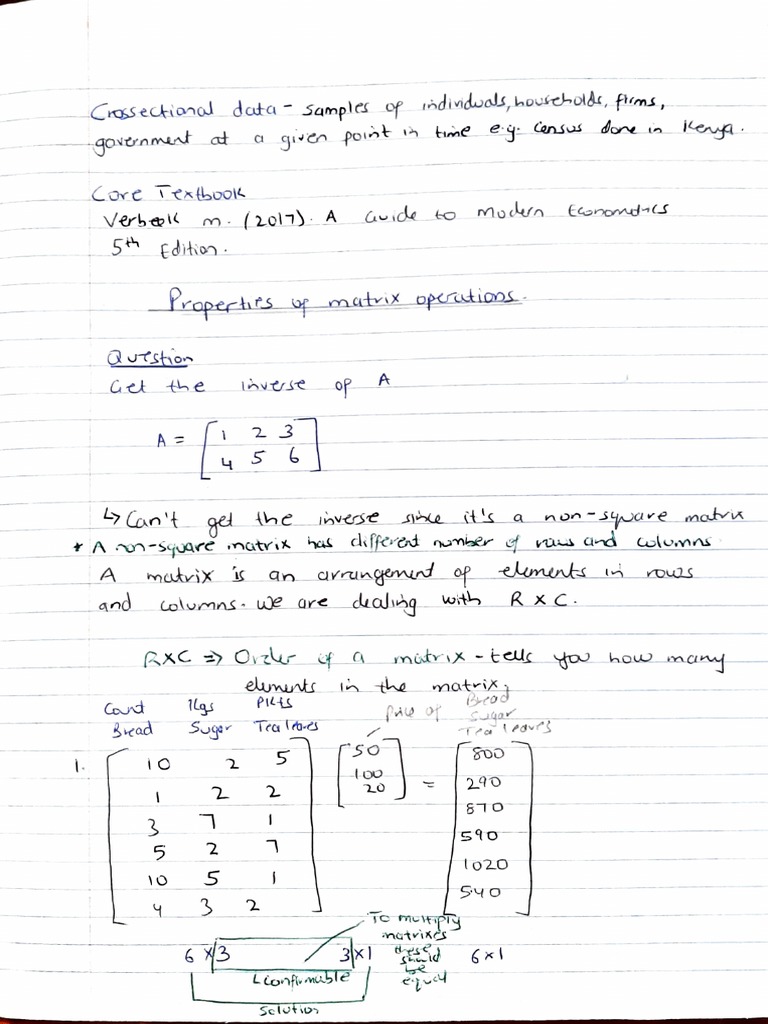 Crossectional data - samples of individuals, households, firms,
government at a given point in time e.g. census done in Kenya.
Core Textbook
Verbeek m. (2017). A Guide to Modern Econometrics
5th Edition.
Properties of matrix operations.
Question
Get the inverse of A
A = [1 2 3
4 5 6]
↳ Can't get the inverse since it's a non-square matrix
* A non-square matrix has different number of rows and columns.
A matrix is an arrangement of elements in rows
and columns. We are dealing with R x C.
RXC => Order of a matrix - tells you how many
elements in the matrix;
Count Kgs Pkts Price of Bread
Bread Sugar Tea leaves Sugar
Tea leaves
1. 10 2 5 50 800
1 2 2 100 = 290
3 7 1 20 870
5 2 7 590
10 5 1 1020
4 3 2 540
To multiply
matrixes
6 x 3 3 x 1 these 6 x 1
should
be
equal
Confirmable
Solution